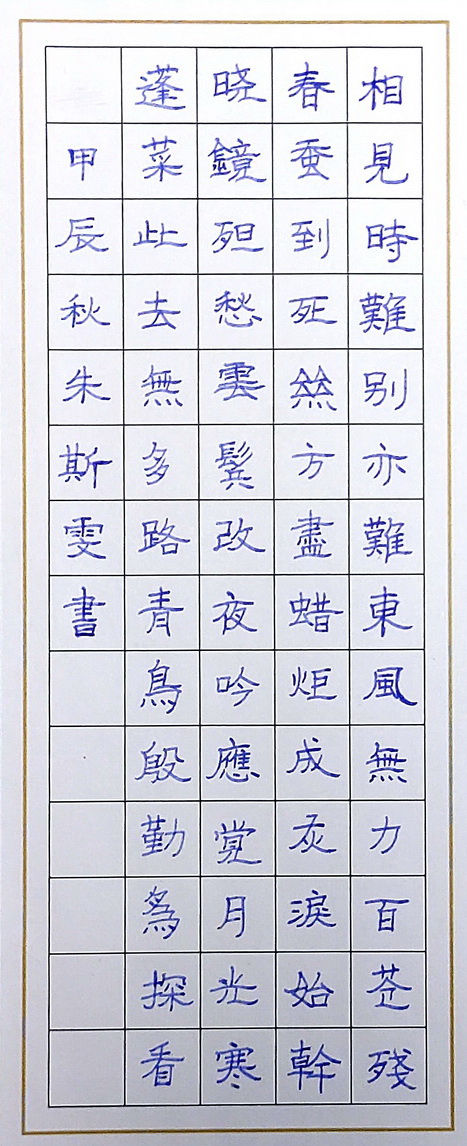 相見時難别亦難東風無力百苍殘
春蚕到死絲方盡蜡炬成灰淚始幹
晓鏡但愁雲鬓改夜吟應覚月光寒
蓬莱此去無多路青鳥殷勤為探看
甲辰秋朱斯雯書